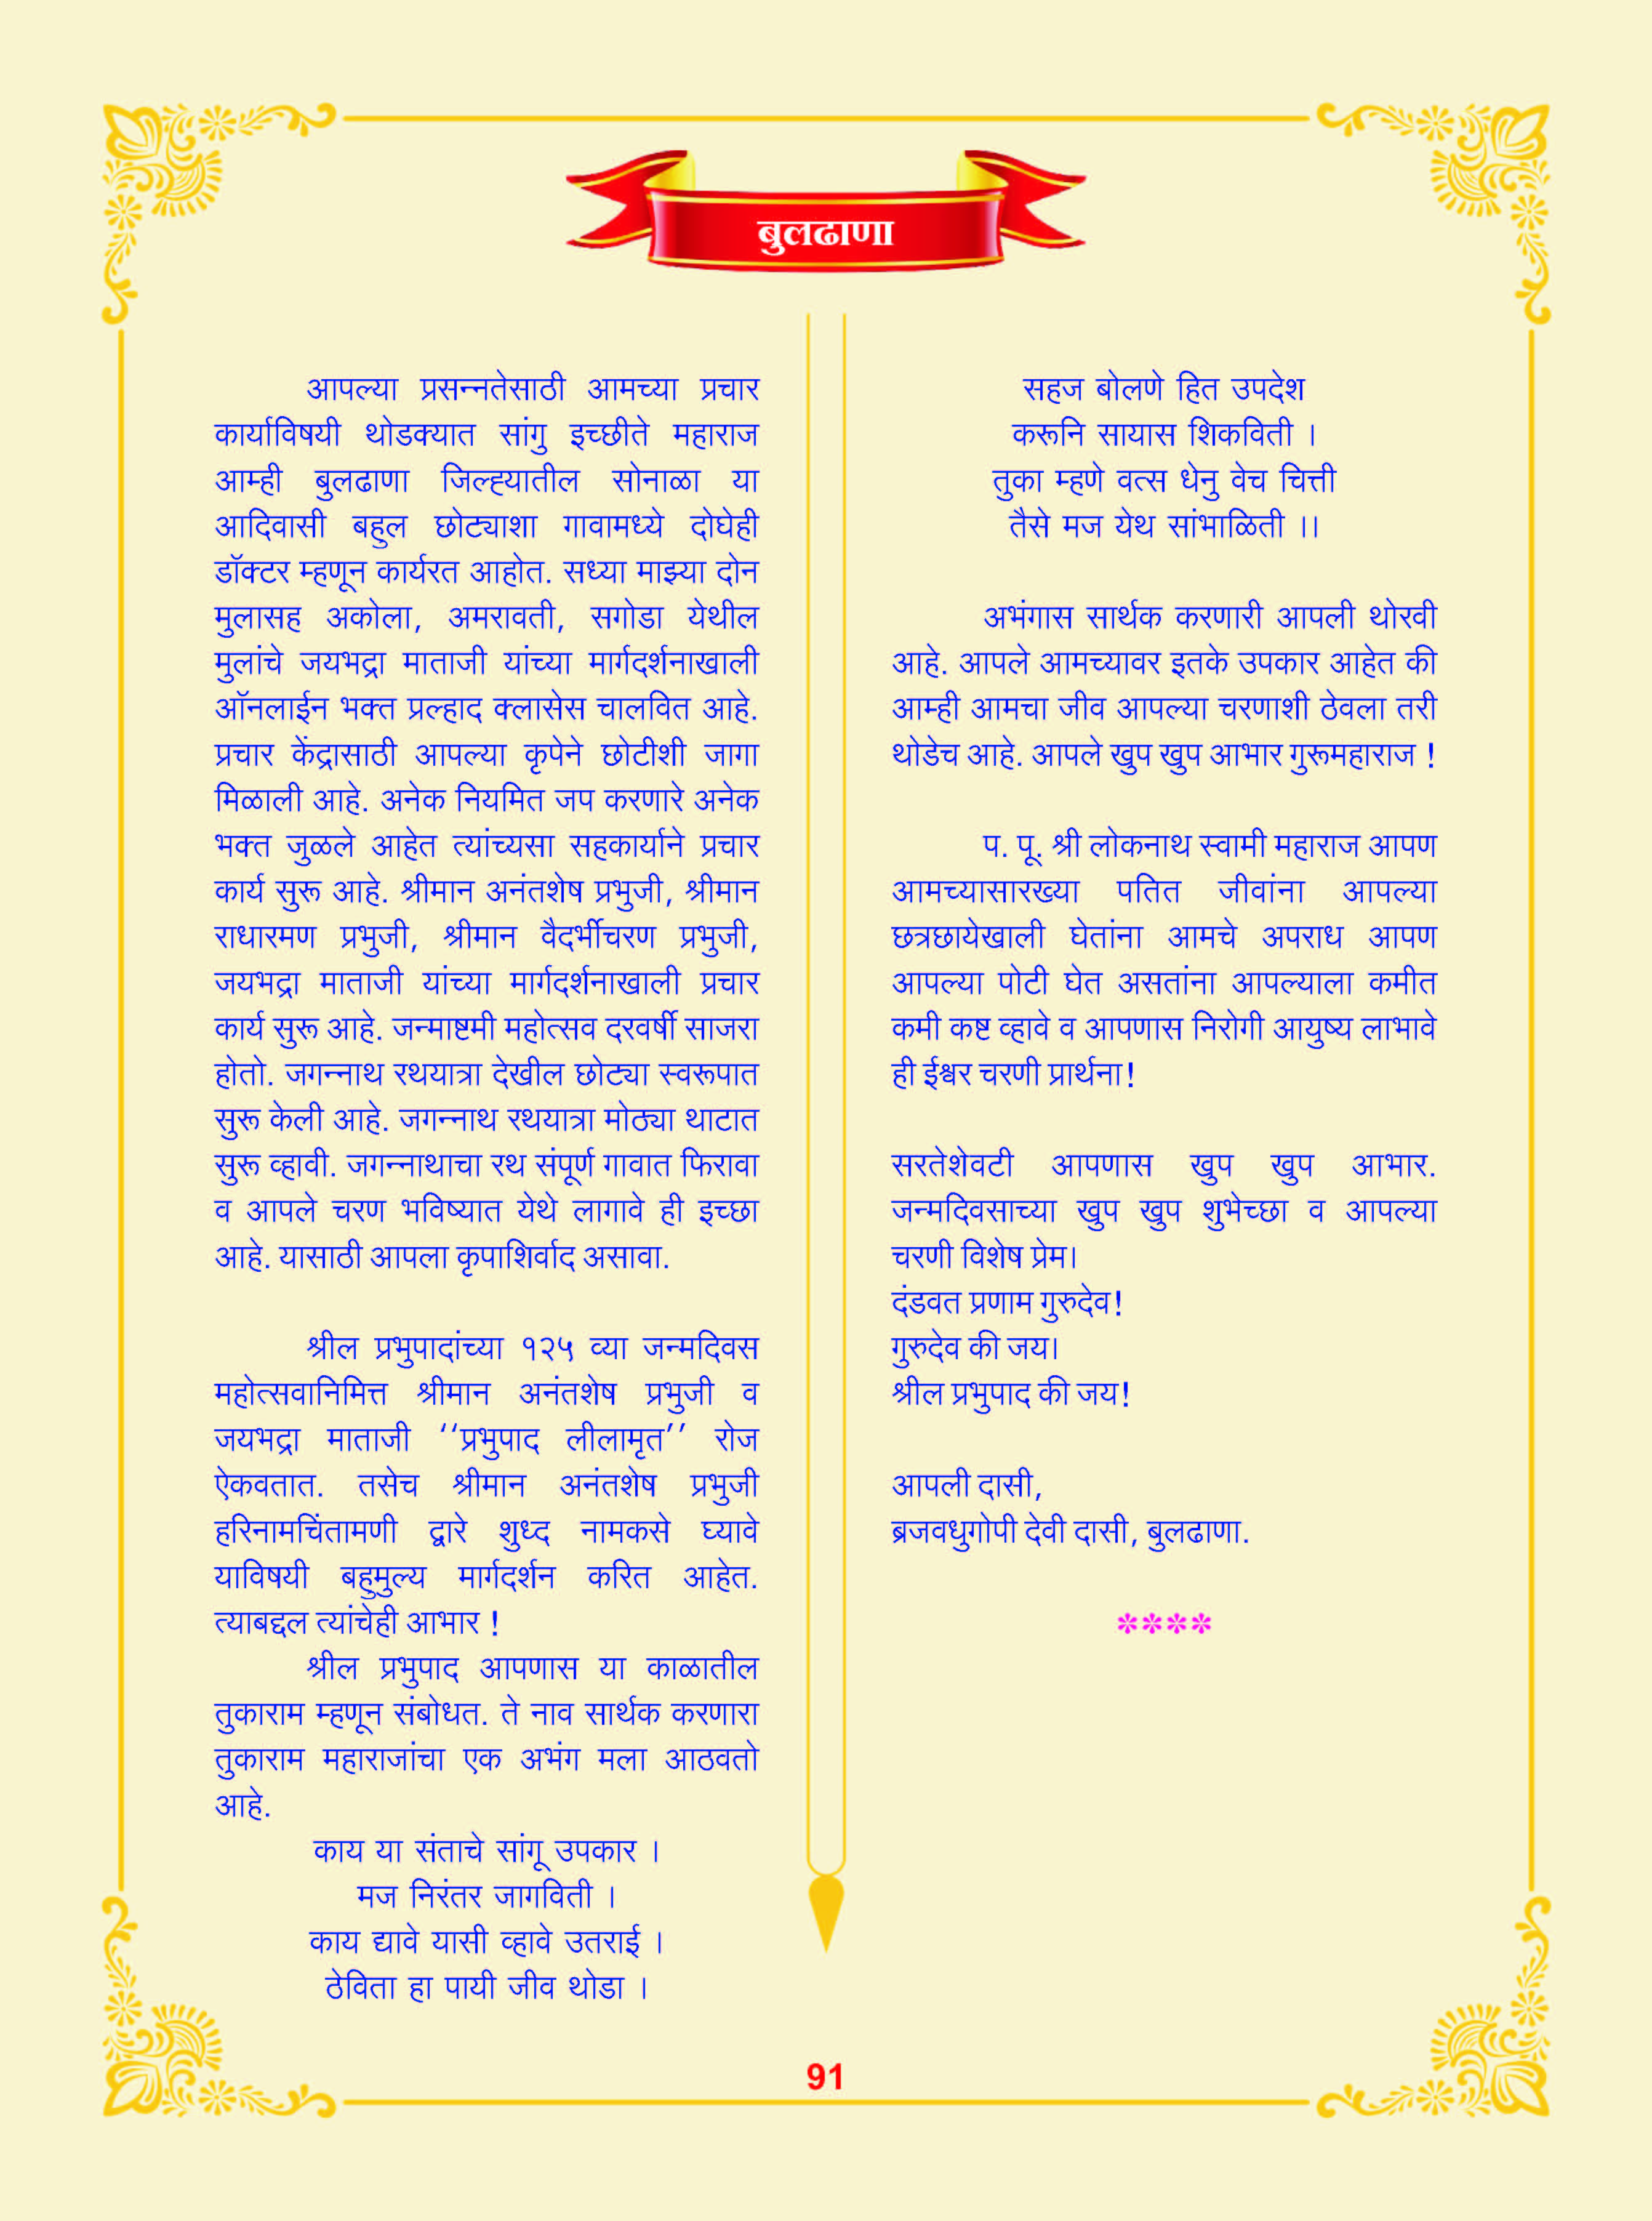 बुलढाणा
आपल्या प्रसन्नतेसाठी आमच्या प्रचार
कार्याविषयी थोडक्यात सांगु इच्छीते महाराज
आम्ही बुलढाणा जिल्ह्यातील सोनाळा या
आदिवासी बहुल छोट्याशा गावामध्ये दोघेही
डॉक्टर म्हणून कार्यरत आहोत. सध्या माझ्या दोन
मुलासह अकोला, अमरावती, सगोडा येथील
मुलांचे जयभद्रा माताजी यांच्या मार्गदर्शनाखाली
ऑनलाईन भक्त प्रल्हाद क्लासेस चालवित आहे.
प्रचार केंद्रासाठी आपल्या कृपेने छोटीशी जागा
मिळाली आहे. अनेक नियमित जप करणारे अनेक
भक्त जुळले आहेत त्यांच्यसा सहकार्याने प्रचार
कार्य सुरू आहे. श्रीमान अनंतशेष प्रभुजी, श्रीमान
राधारमण प्रभुजी, श्रीमान वैदर्भीचरण प्रभुजी,
जयभद्रा माताजी यांच्या मार्गदर्शनाखाली प्रचार
कार्य सुरू आहे. जन्माष्टमी महोत्सव दरवर्षी साजरा
होतो. जगन्नाथ रथयात्रा देखील छोट्या स्वरूपात
सुरू केली आहे. जगन्नाथ रथयात्रा मोठ्या थाटात
सुरू व्हावी. जगन्नाथाचा रथ संपूर्ण गावात फिरावा
व आपले चरण भविष्यात येथे लागावे ही इच्छा
आहे. यासाठी आपला कृपाशिर्वाद असावा.
श्रील प्रभुपादांच्या १२५ व्या जन्मदिवस
महोत्सवानिमित्त श्रीमान अनंतशेष प्रभुजी व
जयभद्रा माताजी ‘‘प्रभुपाद लीलामृत’’ रोज
ऐकवतात. तसेच श्रीमान अनंतशेष प्रभुजी
हरिनामचिंतामणी द्वारे शुध्द नामकसे घ्यावे
याविषयी बहुमुल्य मार्गदर्शन करित आहेत.
त्याबद्दल त्यांचेही आभार !
श्रील प्रभुपाद आपणास या काळातील
तुकाराम म्हणून संबोधत. ते नाव सार्थक करणारा
तुकाराम महाराजांचा एक अभंग मला आठवतो
आहे.
काय या संताचे सांगू उपकार ।
मज निरंतर जागविती ।
काय द्यावे यासी व्हावे उतराई ।
ठेविता हा पायी जीव थोडा ।
सहज बोलणे हित उपदेश
करूनि सायास शिकविती ।
तुका म्हणे वत्स धेनु वेच चित्ती
तैसे मज येथ सांभाळिती ।।
अभंगास सार्थक करणारी आपली थोरवी
आहे. आपले आमच्यावर इतके उपकार आहेत की
आम्ही आमचा जीव आपल्या चरणाशी ठेवला तरी
थोडेच आहे. आपले खुप खुप आभार गुरूमहाराज !
प. पू. श्री लोकनाथ स्वामी महाराज आपण
आमच्यासारख्या पतित जीवांना आपल्या
छत्रछायेखाली घेतांना आमचे अपराध आपण
आपल्या पोटी घेत असतांना आपल्याला कमीत
कमी कष्ट व्हावे व आपणास निरोगी आयुष्य लाभावे
ही ईश्वर चरणी प्रार्थना!
सरतेशेवटी आपणास खुप खुप आभार.
जन्मदिवसाच्या खुप खुप शुभेच्छा व आपल्या
चरणी विशेष प्रेम।
दंडवत प्रणाम गुरुदेव!
गुरुदेव की जय।
श्रील प्रभुपाद की जय!
आपली दासी,
ब्रजवधुगोपी देवी दासी, बुलढाणा.
****
91